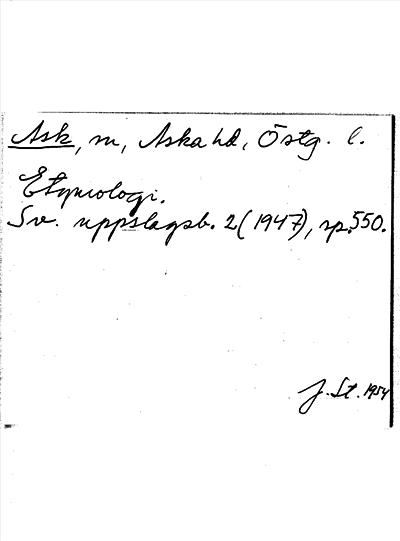 Ask, sn, Aska hd, Östg. l.
Etymologi.
Sv. uppslagsb. 2 (1947), sp. 550.
J. St. 1954